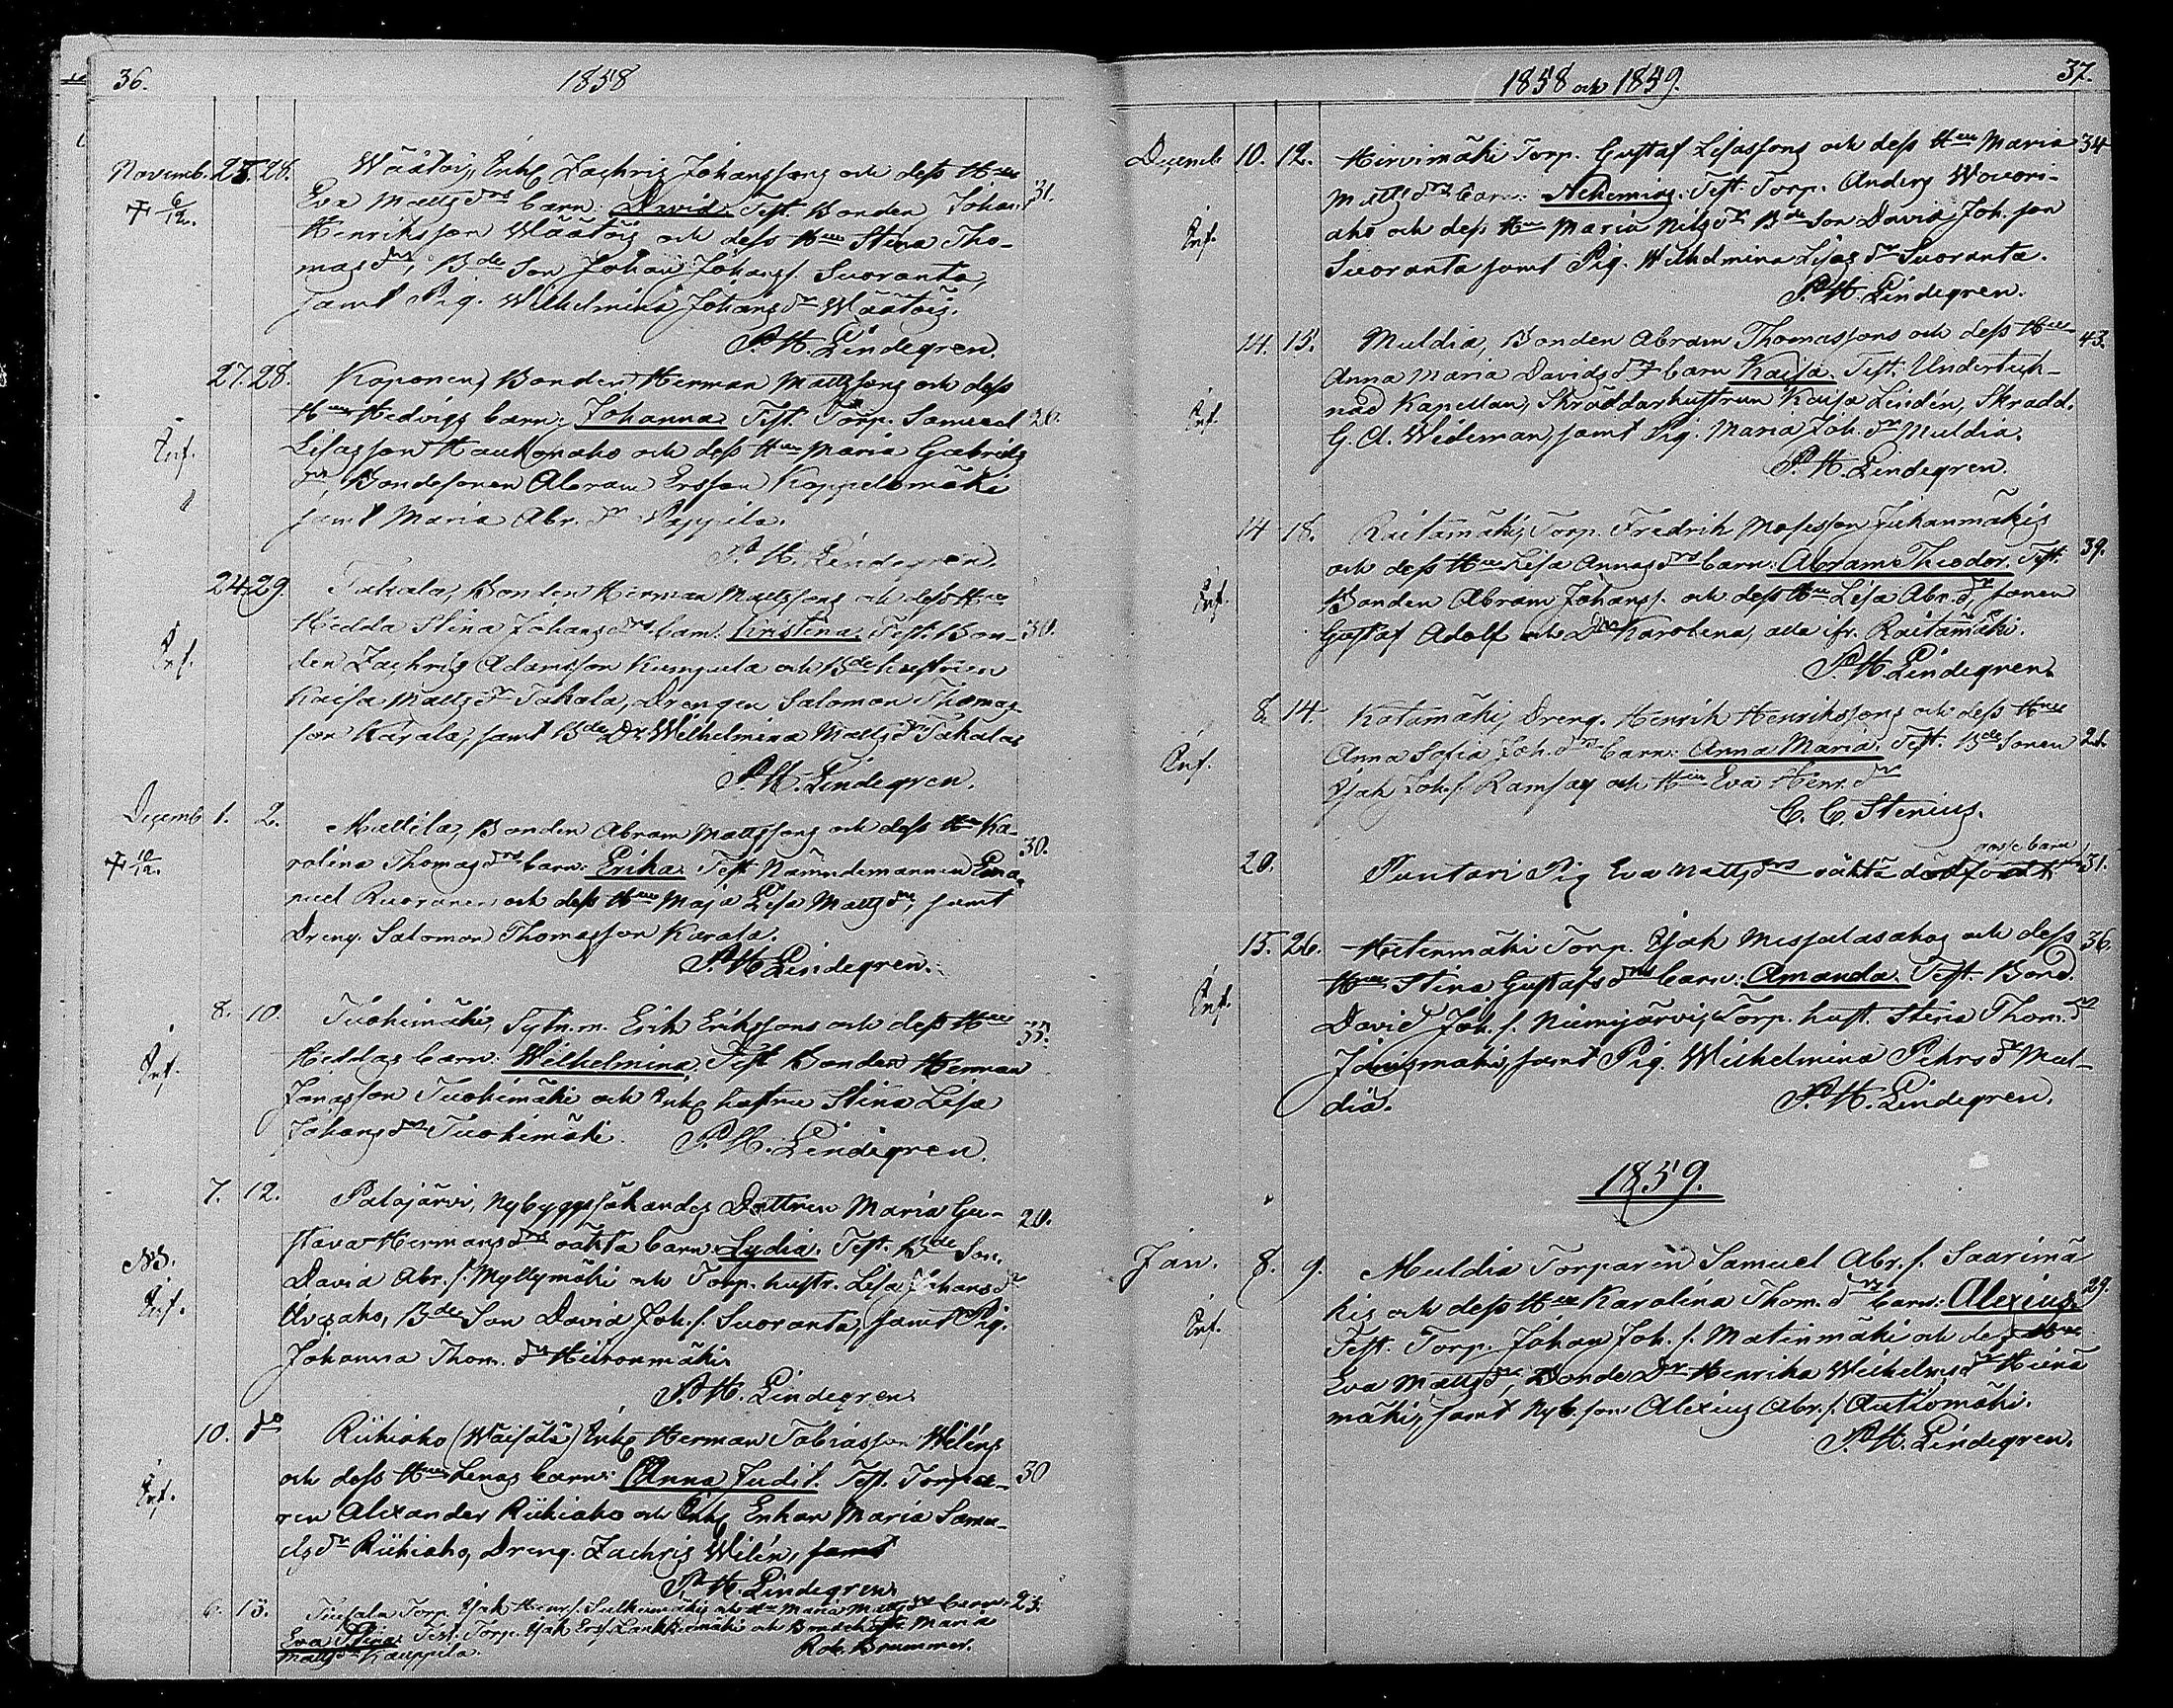 36.
1858
Novemb. 25. 28. Väätöis, Enkl Zachris Johanssons och dess Hus
† 6/12. Eva Mattsdrs barn: David. Test. Bonden Johan 31.
Henriksson Wäätöis och dess Hu Stina Tho-
masdr, Bde Son Johan Johans s. Suoranta,
samt Pig. Wilhelmina Johansdr Wäätöis.
P. H. Lindegren.
27. 28. Koponens Bonden Herman Mattssons och dess
Hus Hedvigs barn: Johanna. Test. Torp. Samuel 20.
Inf. Lisasson Haukonaho och dess Hu Maria Gabriels
dr, Bondesonen Abram Ersson Kappelimäki
samt Maria Abr. dr Pappila.
P. H. Lindegren.
24. 29. Tahala, Bonden Herman Mattssons och dess Hus
Inf. Hedda Stina Johansdrs barn: Kristina. Test. Bon- 30.
den Zachris Adamsson Kumpula och Bdehustrun
Kaisa Mattsdr Tahala, Drengen Salomon Thomas-
son Karala, samt Bde Dr Wilhelmina Mattsdr Tahala
P. H. Lindegren.
Decemb 1. 2. Mattila, Bonden Abram Mattssons och dess Hu Ka-
† 10/12. rolina Thomasdrs barn: Erika. Test. Nämndemannen Ema- 30.
nuel Ruoranen och dess Hu Maja Lisa Mattsdr, samt
Dreng. Salomon Thomasson Karala.
P. H. Lindegren.
8. 10. Tuohimäki, Sytn.m. Erik Erikssons och dess Hus
Inf. Heddas barn: Wilhelmina. Test. Bonden Herman 35.
Jonasson Tuohimäki och Enkl hustru Stina Lisa
Johansdr Tuohimäki. P. H. Lindegren.
7. 12. Palojärvi, Nybyggessökandes Dottren Maria Gu-
stava Hermansdrs oäkta barn: Lydia. Test. Bde Son. 20.
NB. David Abr. s. Myllymäki och Torp. hustr. Lisa Johansdr
Inf. Bde Son David Joh. s. Suoranta, samt Pig.
Johanna Thom. dr Hiironmäki.
P. H. Lindegren.
10. do Riihiaho (Wäisälä) Enkl Herman Tobiasson Wiléns
Inf. och dess Hus Lenas barn: Anna Judit. Test. Torpa- 30
ren Alexander Riihiaho och Enkl Enkan Maria Samu-
elsdr Riihiaho, Dreng. Zachris Wilén, samt
P. H. Lindegren.
6. 13. Torp. Isak Henr. s. och Hu Maria Mattsdrs barn: 23.
Eva Stina. Test. Torp. Isak Ers s. och Maria
Mattsdr Kauppila. Rob. Brummer.
1858 och 1859.
37.
Decemb 10. 12. Hirvimäki Torp. Gustaf Lisassons och dess Hus Maria 34
Matts drs barn: Nehemias. Test. Torp. Anders Wuori-
Inf. aho och dess Hu Maria Nilsdr Bde Son David Joh. son
Suoranta samt Pig. Wilhelmina Lisasdr Suoranta.
P. H. Lindegren.
14. 15. Muldia, Bonden Abram Thomassons och dess Hus 43.
Anna Maria Davidsdrs barn Kaisa. Test. Underteck-
Inf. nad Kapellan, Skräddarhustrun Kaisa Lindén, Skradd.
G. A. Wideman, samt Pig. Maria Joh. dr Muldia.
P. H. Lindegren.
14 18. Raitamäki, Torp. Fredrik Mosesson Juhanmäkis
och dess Hus Lisa Annasdrs barn: Abram Theodor. Test. 39.
Inf. Bonden Abram Johans s. och dess Hu Lisa Abr. dr, sonen
Gustaf Adolf och Dr Karolina, alla ifr. Raitamäki.
P. H. Lindegren.
8. 14. Katamäki, Dreng. Henrik Henrikssons och dess Hus
Inf. Anna Sofia Joh. drs barn: Anna Maria. Test. Bde Sonen 21.
Isak Joh. s. Ramsay och Hu Eva Henr. dr
C. C. Stenius.
gossebarn
20. Puntari Pig Eva Mattsdrs oäkta dödfödt 31.
15. 26. Heitenmäki Torp. Isak Missalasahos och dess 36.
Hus Stina Gustafsdrs barn: Amanda. Test. Bond.
Inf. David Joh. s. Niemijärvi, Torp. hust. Stina Thom. dr
Jänismäki, samt Pig. Wilhelmina Pehrsdr Mul-
dia. P. H. Lindegren.
1859.
Jan. 8. 9. Muldia Torparen Samuel Abr. s. Saarimä
kis och dess Hus Karolina Thom. drs barn: Alexius. 29.
Inf. Test. Torp. Johan Joh. s. Matinmäki och dess Hu
Eva Mattsdr, Bonde Dr Henrika Wilhelmsdr Heinä
mäki, samt Nyb. son Alexius Abr. s. Autiomäki.
P. H. Lindegren.